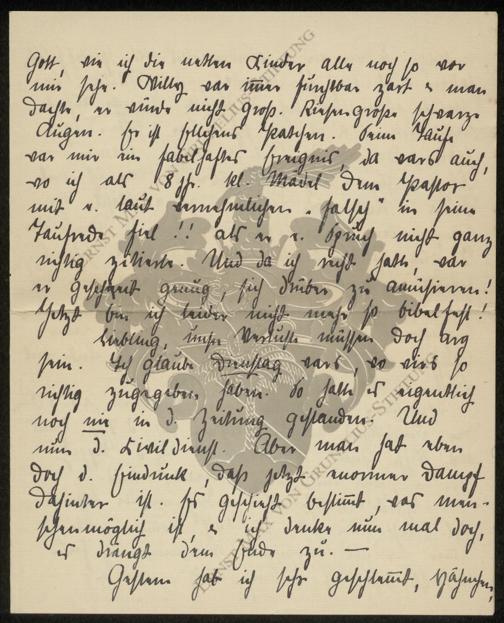 Gott, wie ich die netten Kinder alle noch so vor
mir sehe. Willy war immer furchtbar zart u man
dachte, er würde nicht groß. Riesengroße schwarze
Augen. Er ist Patchen. Seine Taufe
war mir ein fabelhaftes Ereignis, da wars auch,
wo ich als 8 jhr. kl. Mädel dem Pastor
mit e. laut vernehmlichen „falsch" in seine
Taufrede fiel!! als er e. Spruch nicht ganz
richtig zitierte. Und da ich recht hatte, war
er gescheit genug, sich drüber zu amüsieren!
Jetzt bin ich leider nicht mehr so bibelfest!
Liebling, unsre Verluste müssen doch arg
sein. Ich glaube Dienstag wars, wo wirs so
richtig zugegeben haben. So hatte es eigentlich
noch nie in d. Zeitung gestanden. Und
nun d. Civildienst. Aber man hat eben
doch d. Eindruck, daß jetzt enormer Dampf
dahinter ist. Es geschieht bestimmt, was men-
schenmöglich ist, u ich denke nun mal doch,
es drängt dem Ende zu. —
Gestern hab ich sehr geschlemmt, Hähnchen,
ERNST MAX VON GRUNELIUS-STIFTUNG